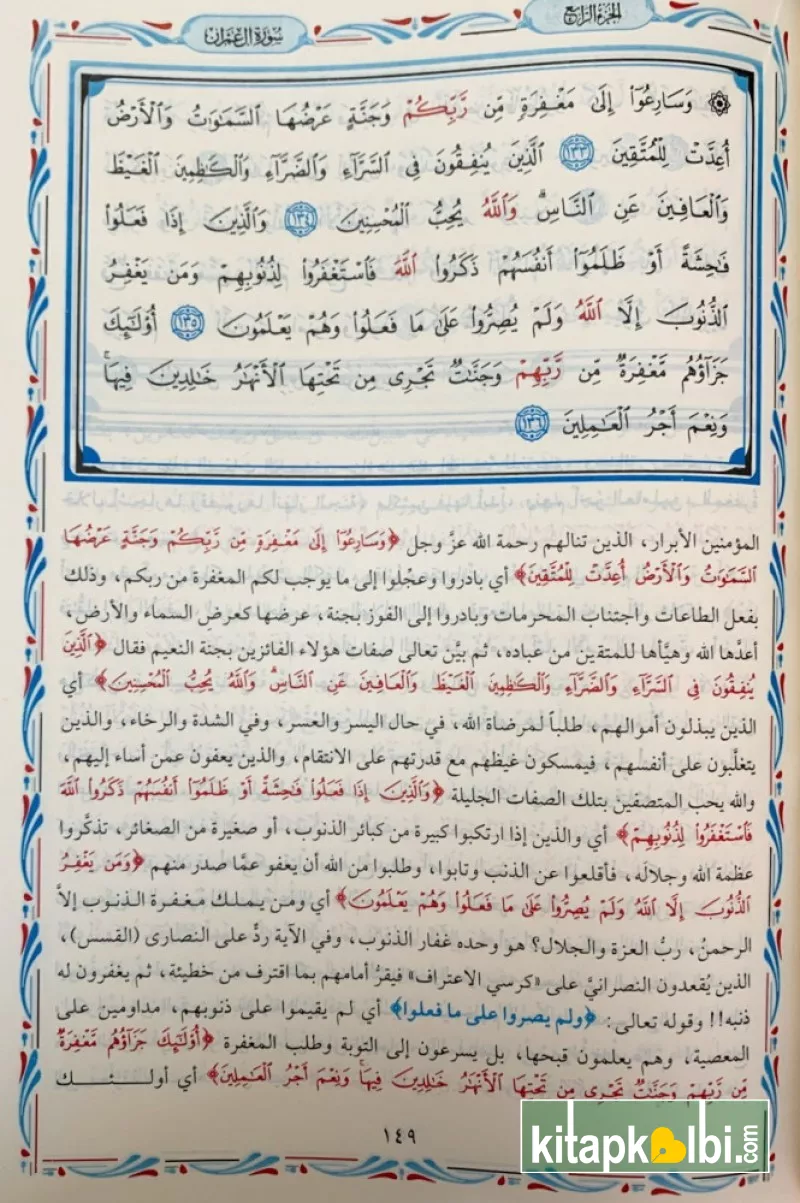 سورة آل عمران
الجزء الرابع
۞ وَسَارِعُوٓا۟ إِلَىٰ مَغْفِرَةٍ مِّن رَّبِّكُمْ وَجَنَّةٍ عَرْضُهَا ٱلسَّمَٰوَٰتُ وَٱلْأَرْضُ
أُعِدَّتْ لِلْمُتَّقِينَ ١٣٣ ٱلَّذِينَ يُنفِقُونَ فِى ٱلسَّرَّآءِ وَٱلضَّرَّآءِ وَٱلْكَٰظِمِينَ ٱلْغَيْظَ
وَٱلْعَافِينَ عَنِ ٱلنَّاسِ ۗ وَٱللَّهُ يُحِبُّ ٱلْمُحْسِنِينَ ١٣٤ وَٱلَّذِينَ إِذَا فَعَلُوا۟
فَٰحِشَةً أَوْ ظَلَمُوٓا۟ أَنفُسَهُمْ ذَكَرُوا۟ ٱللَّهَ فَٱسْتَغْفَرُوا۟ لِذُنُوبِهِمْ وَمَن يَغْفِرُ
ٱلذُّنُوبَ إِلَّا ٱللَّهُ وَلَمْ يُصِرُّوا۟ عَلَىٰ مَا فَعَلُوا۟ وَهُمْ يَعْلَمُونَ ١٣٥ أُو۟لَٰٓئِكَ
جَزَآؤُهُم مَّغْفِرَةٌ مِّن رَّبِّهِمْ وَجَنَّٰتٌ تَجْرِى مِن تَحْتِهَا ٱلْأَنْهَٰرُ خَٰلِدِينَ فِيهَا ۚ
وَنِعْمَ أَجْرُ ٱلْعَٰمِلِينَ ١٣٦
المؤمنين الأبرار، الذين تنالهم رحمة الله عزَّ وجل ﴿وَسَارِعُوٓا۟ إِلَىٰ مَغْفِرَةٍ مِّن رَّبِّكُمْ وَجَنَّةٍ عَرْضُهَا
ٱلسَّمَٰوَٰتُ وَٱلْأَرْضُ أُعِدَّتْ لِلْمُتَّقِينَ﴾ أي بادروا وعجِّلوا إلى ما يوجب لكم المغفرة من ربكم، وذلك
بفعل الطاعات واجتناب المحرمات وبادروا إلى الفوز بجنة، عرضها كعرض السماء والأرض،
أعدَّها الله وهيَّأها للمتقين من عباده، ثم بيَّن تعالى صفات هؤلاء الفائزين بجنة النعيم فقال ﴿ٱلَّذِينَ
يُنفِقُونَ فِى ٱلسَّرَّآءِ وَٱلضَّرَّآءِ وَٱلْكَٰظِمِينَ ٱلْغَيْظَ وَٱلْعَافِينَ عَنِ ٱلنَّاسِ ۗ وَٱللَّهُ يُحِبُّ ٱلْمُحْسِنِينَ﴾ أي
الذين يبذلون أموالهم، طلباً لمرضاة الله، في حال اليسر والعسر، وفي الشدة والرخاء، والذين
يتغلَّبون على أنفسهم، فيمسكون غيظهم مع قدرتهم على الانتقام، والذين يعفون عمن أساء إليهم،
والله يحب المتصفين بتلك الصفات الجليلة ﴿وَٱلَّذِينَ إِذَا فَعَلُوا۟ فَٰحِشَةً أَوْ ظَلَمُوٓا۟ أَنفُسَهُمْ ذَكَرُوا۟ ٱللَّهَ
فَٱسْتَغْفَرُوا۟ لِذُنُوبِهِمْ﴾ أي والذين إذا ارتكبوا كبيرة من كبائر الذنوب، أو صغيرة من الصغائر، تذكَّروا
عظمة الله وجلالَه، فأقلعوا عن الذنب وتابوا، وطلبوا من الله أن يعفو عمَّا صدر منهم ﴿وَمَن يَغْفِرُ
ٱلذُّنُوبَ إِلَّا ٱللَّهُ وَلَمْ يُصِرُّوا۟ عَلَىٰ مَا فَعَلُوا۟ وَهُمْ يَعْلَمُونَ﴾ أي ومن يملك مغفرة الذنوب إلاَّ
الرحمنُ، ربُّ العزة والجلال؟ هو وحده غفار الذنوب، وفي الآية ردٌّ على النصارى (القسس)،
الذين يُقعدون النصرانيَّ على «كرسي الاعتراف» فيقرُّ أمامهم بما اقترف من خطيئة، ثم يغفرون له
ذنبه!! وقوله تعالى: ﴿ولم يصروا على ما فعلوا﴾ أي لم يقيموا على ذنوبهم، مداومين على
المعصية، وهم يعلمون قبحها، بل يسرعون إلى التوبة وطلب المغفرة ﴿أُو۟لَٰٓئِكَ جَزَآؤُهُم مَّغْفِرَةٌ
مِّن رَّبِّهِمْ وَجَنَّٰتٌ تَجْرِى مِن تَحْتِهَا ٱلْأَنْهَٰرُ خَٰلِدِينَ فِيهَا ۚ وَنِعْمَ أَجْرُ ٱلْعَٰمِلِينَ﴾ أي أولئك
١٤٩
kitapkalbi.com